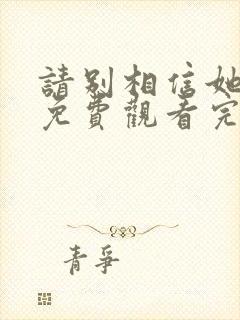 請別相信她
免費觀看完
青爭